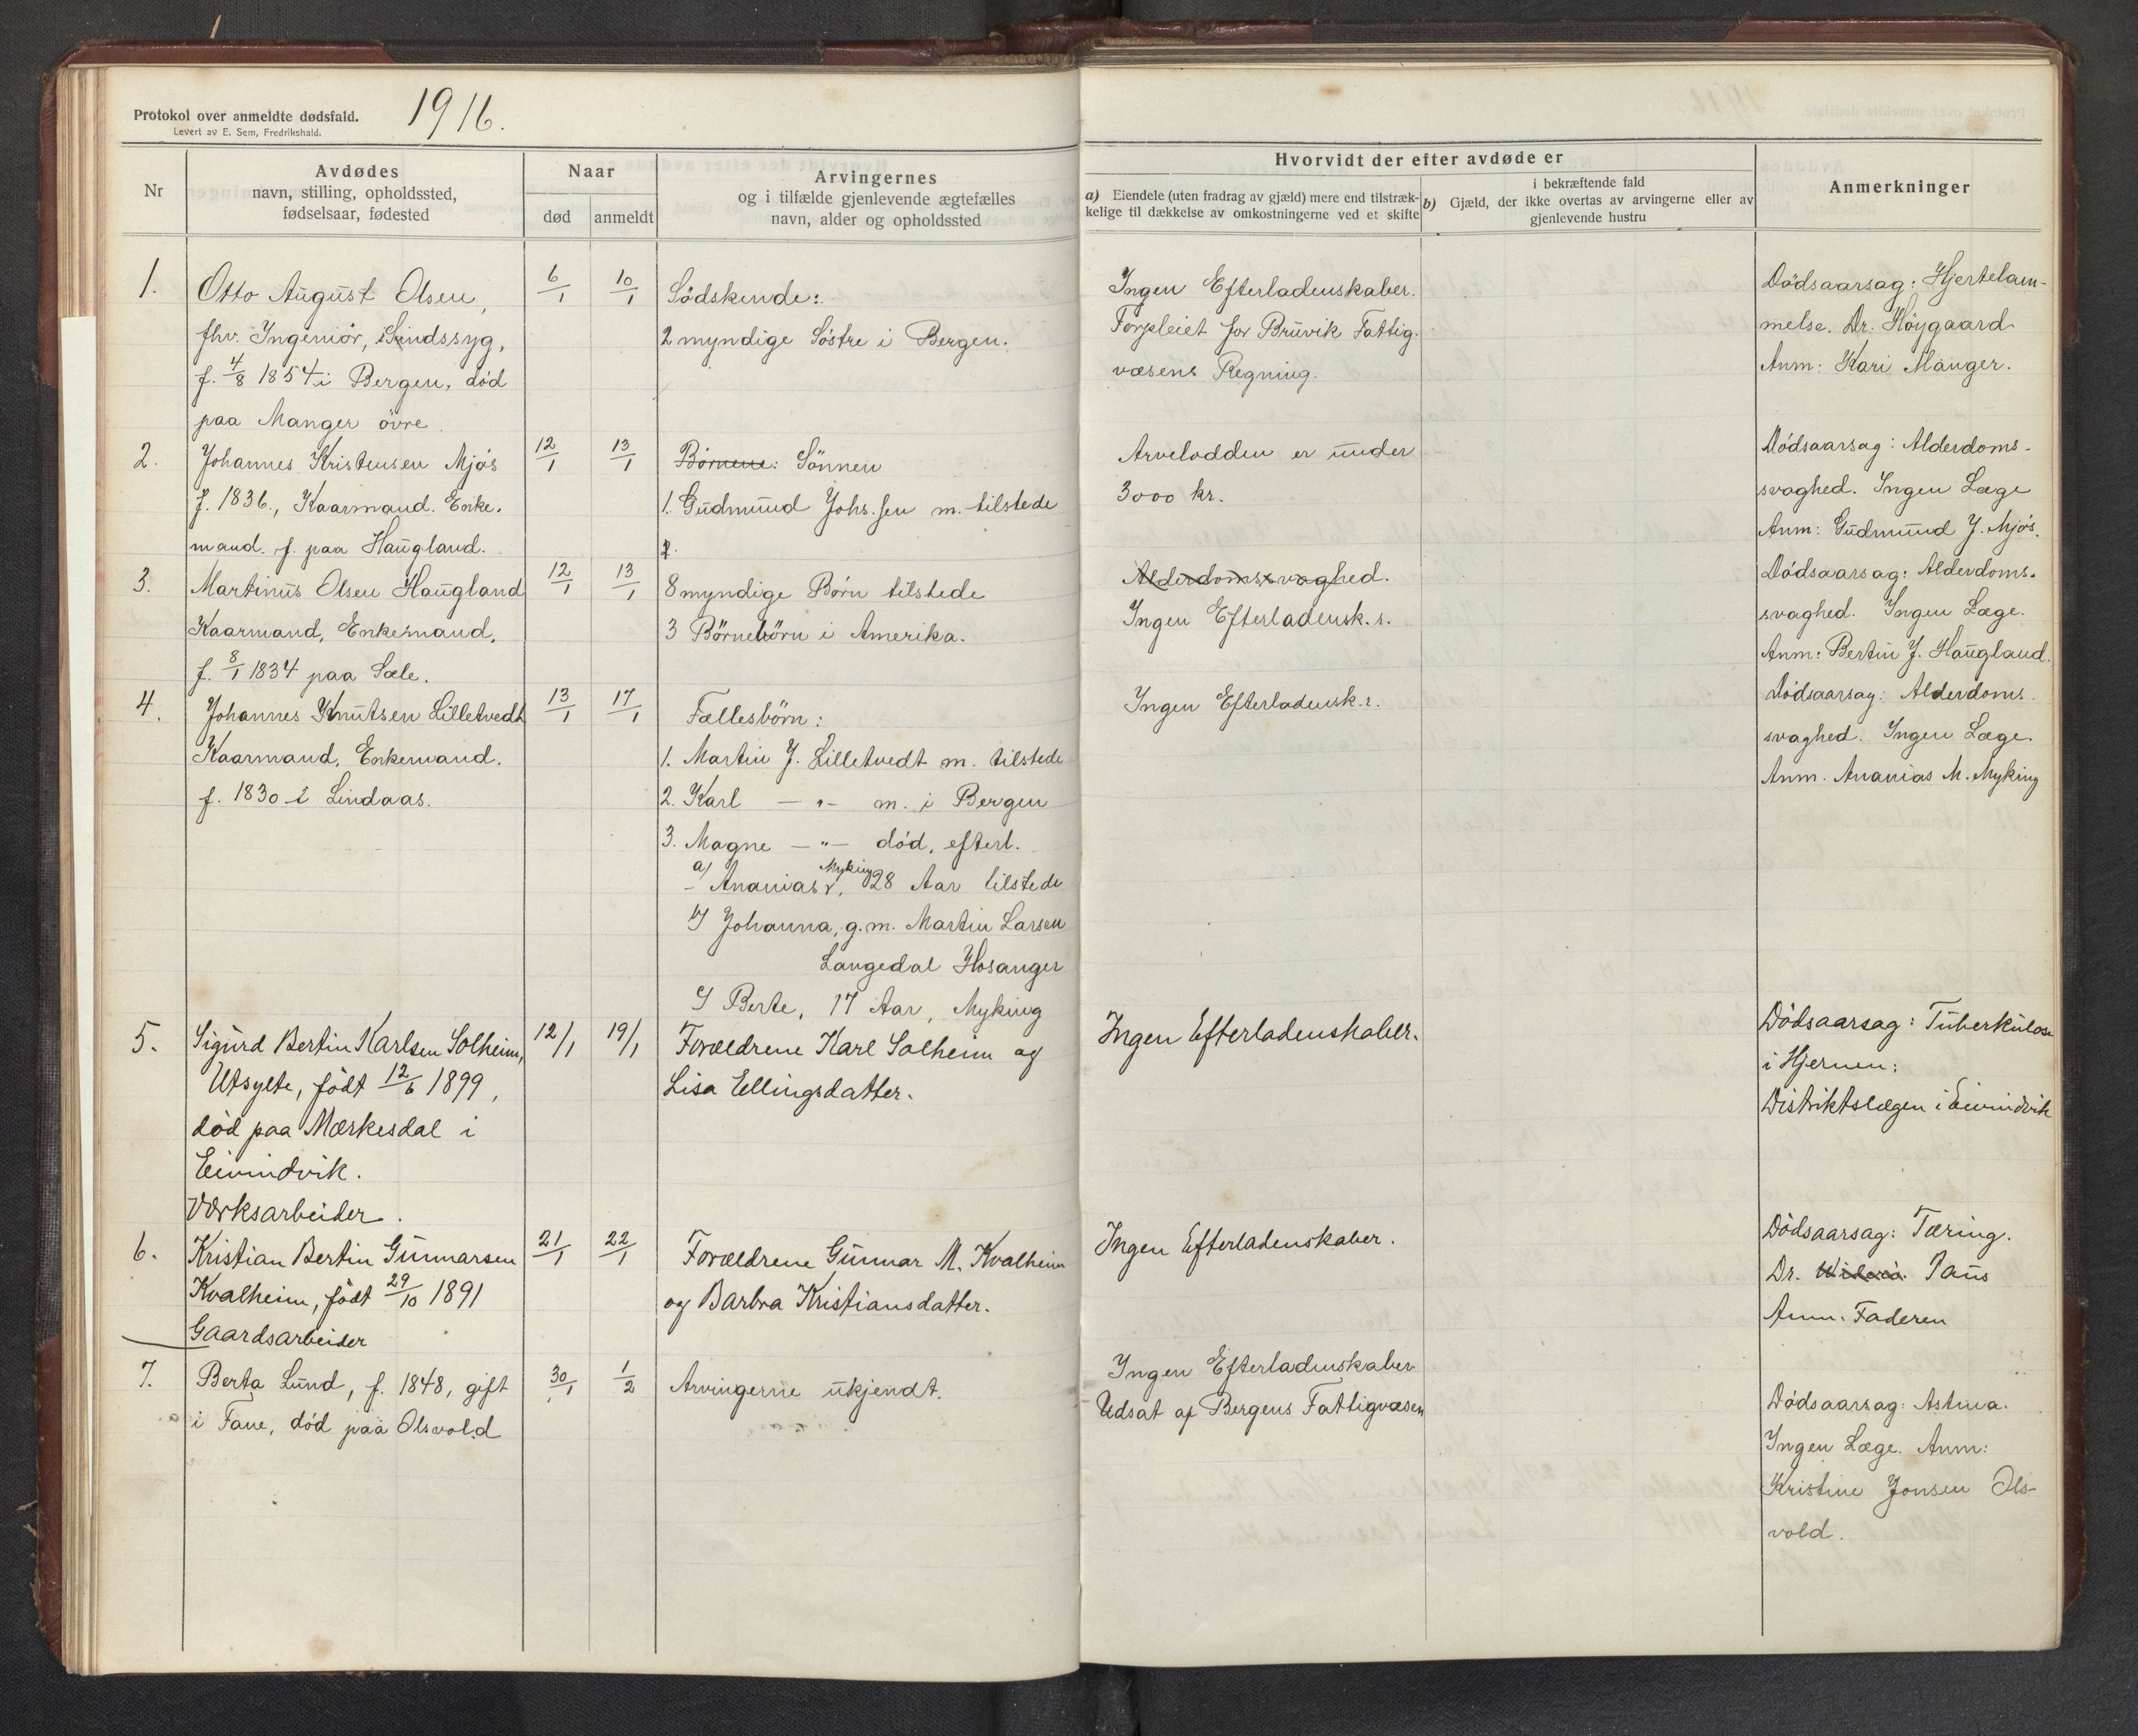 Protokol over anmeldte dødsfald.
Levert av E. Sem, Fredrikshald.
1916.
Nr
Avdødes
navn, stilling, opholdssted,
fødselsaar, fødested
Naar
død
anmeldt
Arvingernes
og i tilfælde gjenlevende ægtefælles
navn, alder og opholdssted
Hvorvidt der efter avdøde er
a) Eiendele (uten fradrag av gjæld) mere end tilstræk-
kelige til dækkelse av omkostningerne ved et skifte
i bekræftende fald
b) Gjæld, der ikke overtas av arvingerne eller av
gjenlevende hustru
Anmerkninger
1.
Otto August Olsen,
fhv. Ingeniör, Sindssyg,
f. 4/8 1854 i Bergen, död
paa Manger övre.
6/1
10/1
Södskende:
2 myndige Söstre i Bergen.
Ingen Efterladenskaber.
Forpleiet for Bruvik Fattig-
væsens Regning.
Dödsaarsag: Hjertelam-
melse. Dr. Höygaard
Anm: Kari Manger.
2.
Johannes Kristensen Mjös
f. 1836., Kaarmand. Enke-
mand. f. paa Haugland.
12/1
13/1
Börnene: Sönnen
1. Gudmund Johs.sen m. tilstede
2.
Arvelodden er under
3000 kr.
Dödsaarsag: Alderdoms-
svaghed. Ingen Læge
Anm: Gudmund J. Mjös.
3.
Martinus Olsen Haugland
Kaarmand, Enkemand,
f. 8/1 1834 paa Sæle.
12/1
13/1
8 myndige Börn tilstede
3 Börnebörn i Amerika.
Alderdomssvaghed.
Ingen Efterladensk.r.
Dödsaarsag: Alderdoms-
svaghed. Ingen Læge.
Anm: Bertin J. Haugland.
4.
Johannes Knutsen Lilletvedt
Kaarmand, Enkemand.
f. 1830 i Lindaas.
13/1
17/1
Fællesbörn:
1. Martin J. Lilletvedt m. tilstede
2. Karl — " — m. i Bergen
3. Magne — " — död, efterl.
a) Ananias Myking, 28 Aar tilstede
b) Johanna, g.m. Martin Larsen
Langedal Hosanger
c) Berte, 17 Aar, Myking
Ingen Efterladensk.r.
Dödsaarsag: Alderdoms
svaghed. Ingen Læge.
Anm. Ananias M. Myking
5.
Sigurd Bertin Karlsen Solheim,
Utsylte, födt 12/6 1899,
död paa Mærkesdal i
Eivindvik.
Værksarbeider.
12/1
19/1
Forældrene Karl Solheim og
Lisa Ellingsdatter.
Ingen Efterladenskaber.
Dödsaarsag: Tuberkulose
i Hjernen:
Distriktslægen i Eivindvik
6.
Kristian Bertin Gunnarsen
Kvalheim, födt 29/10 1891
Gaardsarbeider
21/1
22/1
Forældrene Gunnar M. Kvalheim
og Barbra Kristiansdatter.
Ingen Efterladenskaber.
Dödsaarsag: Tæring.
Dr. Paus
Anm. Faderen
7.
Berta Lund, f. 1848, gift
i Fane, död paa Olsvold
30/1
1/2
Arvingerne ukjendt.
Ingen Efterladenskaber
Udsat af Bergens Fattigvæsen
Dödsaarsag: Astma.
Ingen Læge. Anm:
Kristine Jonsen Ols-
vold.